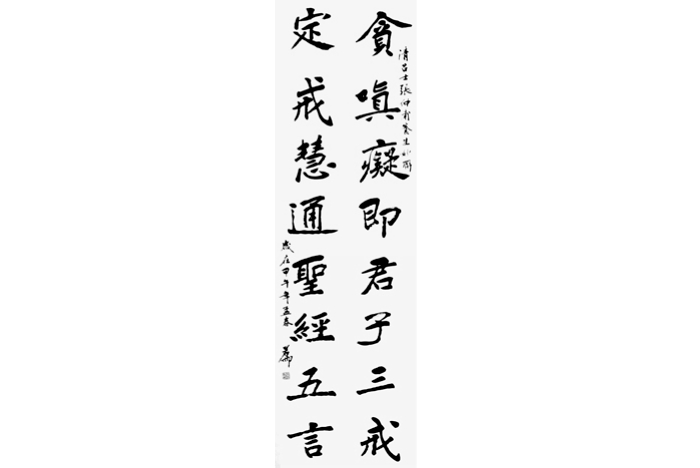 貪嗔癡即君子三戒
清士張仲養生小聯
定戒慧通聖經五言
歲在甲午年孟春